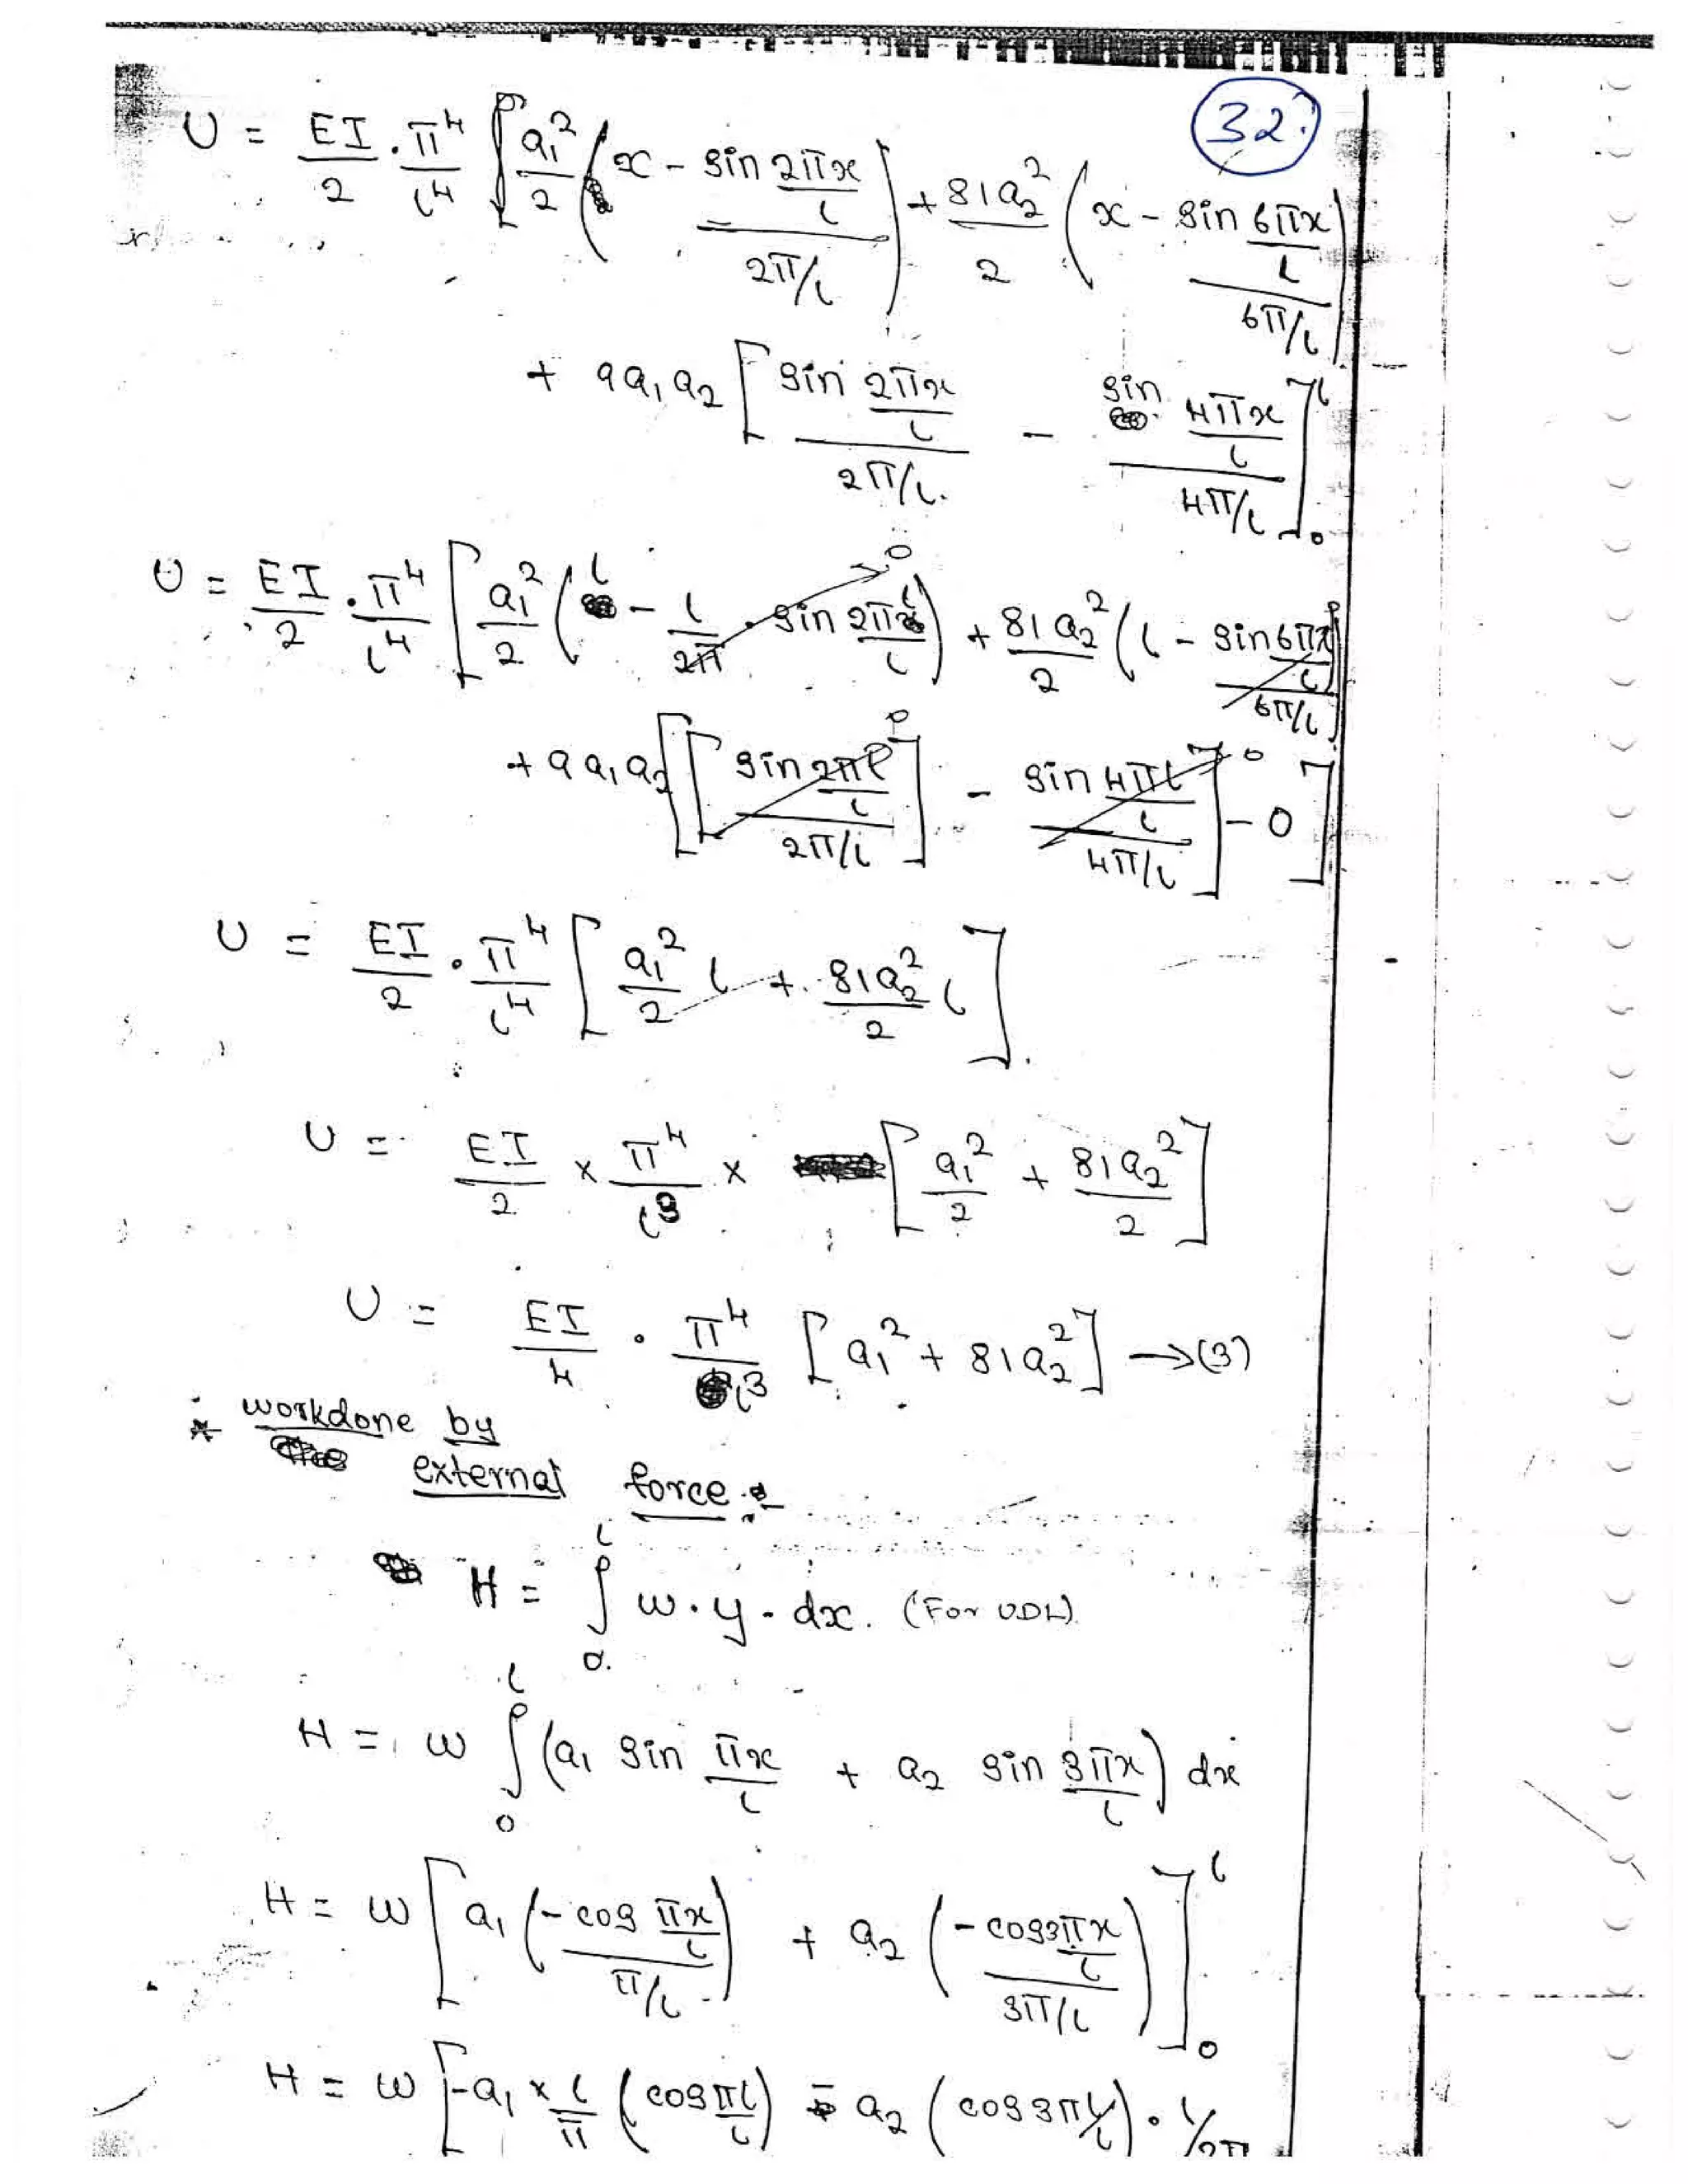 32
U = EI/2 · π⁴/l⁴ [ a₁²/2 ( x - sin 2πx/l / 2π/l ) + 81a₂²/2 ( x - sin 6πx/l / 6π/l )
+ 9a₁a₂ [ sin 2πx/l / 2π/l - sin 4πx/l / 4π/l ]₀ˡ
U = EI/2 · π⁴/l⁴ [ a₁²/2 ( l - l/2π · sin 2πl/l ) 0 + 81a₂²/2 ( l - sin 6πl/l / 6π/l ) 0
+ 9a₁a₂ [ [ sin 2πl/l / 2π/l ] 0 - sin 4πl/l / 4π/l ] 0 - 0 ]
U = EI/2 · π⁴/l⁴ [ a₁²/2 l + 81a₂²/2 l ].
U = EI/2 × π⁴/l³ × [ a₁²/2 + 81a₂²/2 ]
U = EI/4 · π⁴/l³ [ a₁² + 81a₂² ] → (3)
* workdone by
external force :-
H = ∫₀ˡ w · y · dx. (For UDL)
H = w ∫₀ˡ ( a₁ sin πx/l + a₂ sin 3πx/l ) dx
H = w [ a₁ ( - cos πx/l / π/l ) + a₂ ( - cos 3πx/l / 3π/l ) ]₀ˡ
H = w [ -a₁ × l/π ( cos πl/l ) - a₂ ( cos 3πl/l ) · l/3π